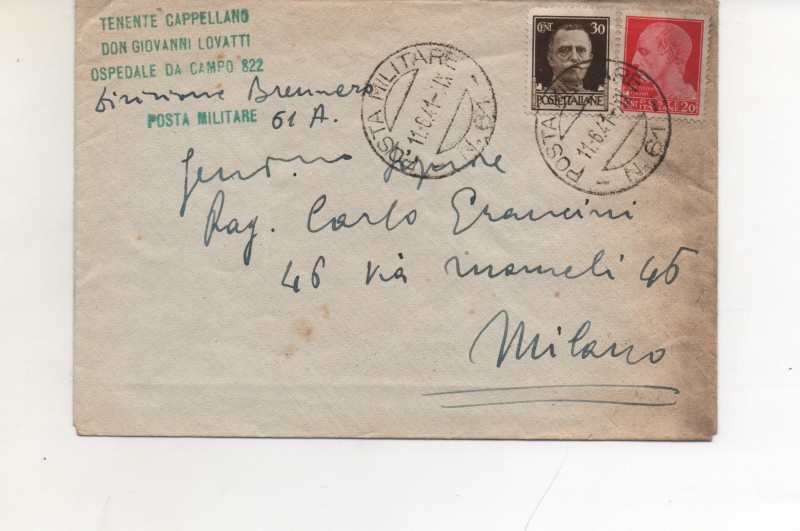 TENENTE CAPPELLANO
DON GIOVANNI LOVATTI
OSPEDALE DA CAMPO 822
Divisione Brennero
POSTA MILITARE 61 A.
POSTA MILITARE - N. 61
11.6.41
CENT. 30
POSTE ITALIANE
CENT. 20
POSTE ITALIANE
POSTA MILITARE - N. 61
11.6.41
Signore
Rag. Carlo Francini
46 via Mameli 46
Milano